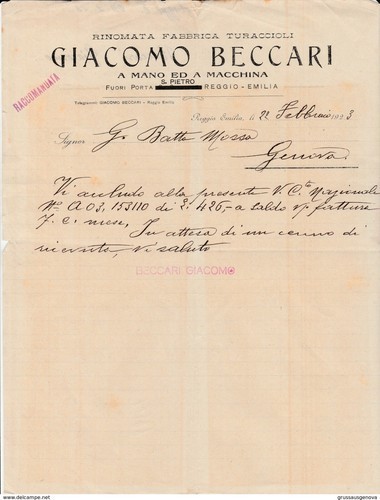 RINOMATA FABBRICA TURACCIOLI
GIACOMO BECCARI
A MANO ED A MACCHINA
S. PIETRO
FUORI PORTA REGGIO - EMILIA
RACCOMANDATA
Telegrammi: GIACOMO BECCARI - Reggio Emilia
Reggio Emilia, li 22 Febbraio 1923
Signor G. Batta Mossa
Genova
Vi accludo alla presente V. C. Nazionale
No A 03, 153110 di £. 426,- a saldo vs fattura
7. c. mese, In attesa di un cenno di
ricevuta, vi saluto
BECCARI GIACOMO
delcampe.net
grussausgenova